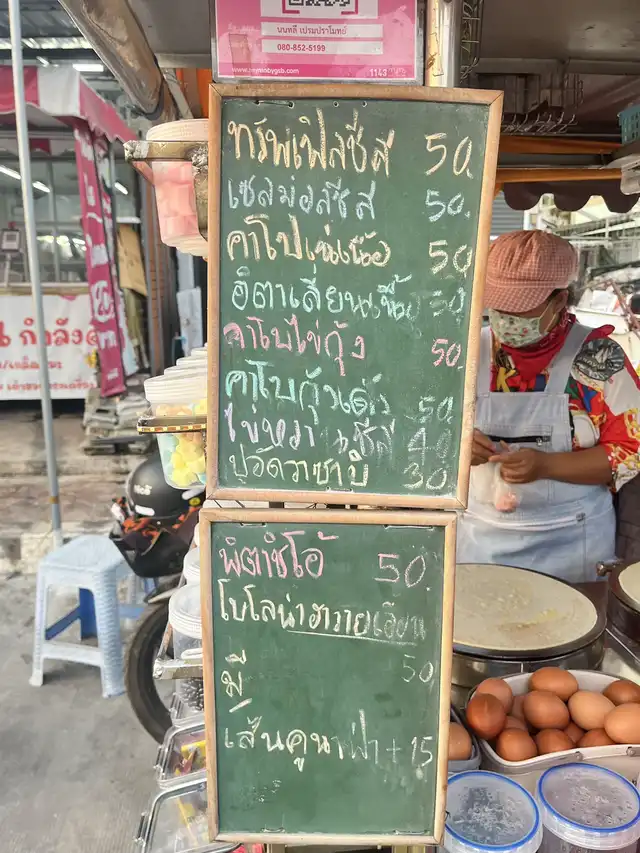 นนทลี เปรมปราโมทย์
080-852-5199
1143
ทรัฟเฟิลชีส 50.
แซลม่อลชีส 50.
คาโบเบ่เนื้อง 50
อิตาเลี่ยนเนื้อ 50
คาโบไข่กุ้ง 50.
คาโบกุ้งเด้ง 50.
ไข่หวานชีส 40
ปูอัดวาซาบิ 30
พิตาชิโอ้ 50
โบโลน่าฮาวายเอี้ยน
50
มี
เส้นคูนาฟ่า + 15
กำลัง